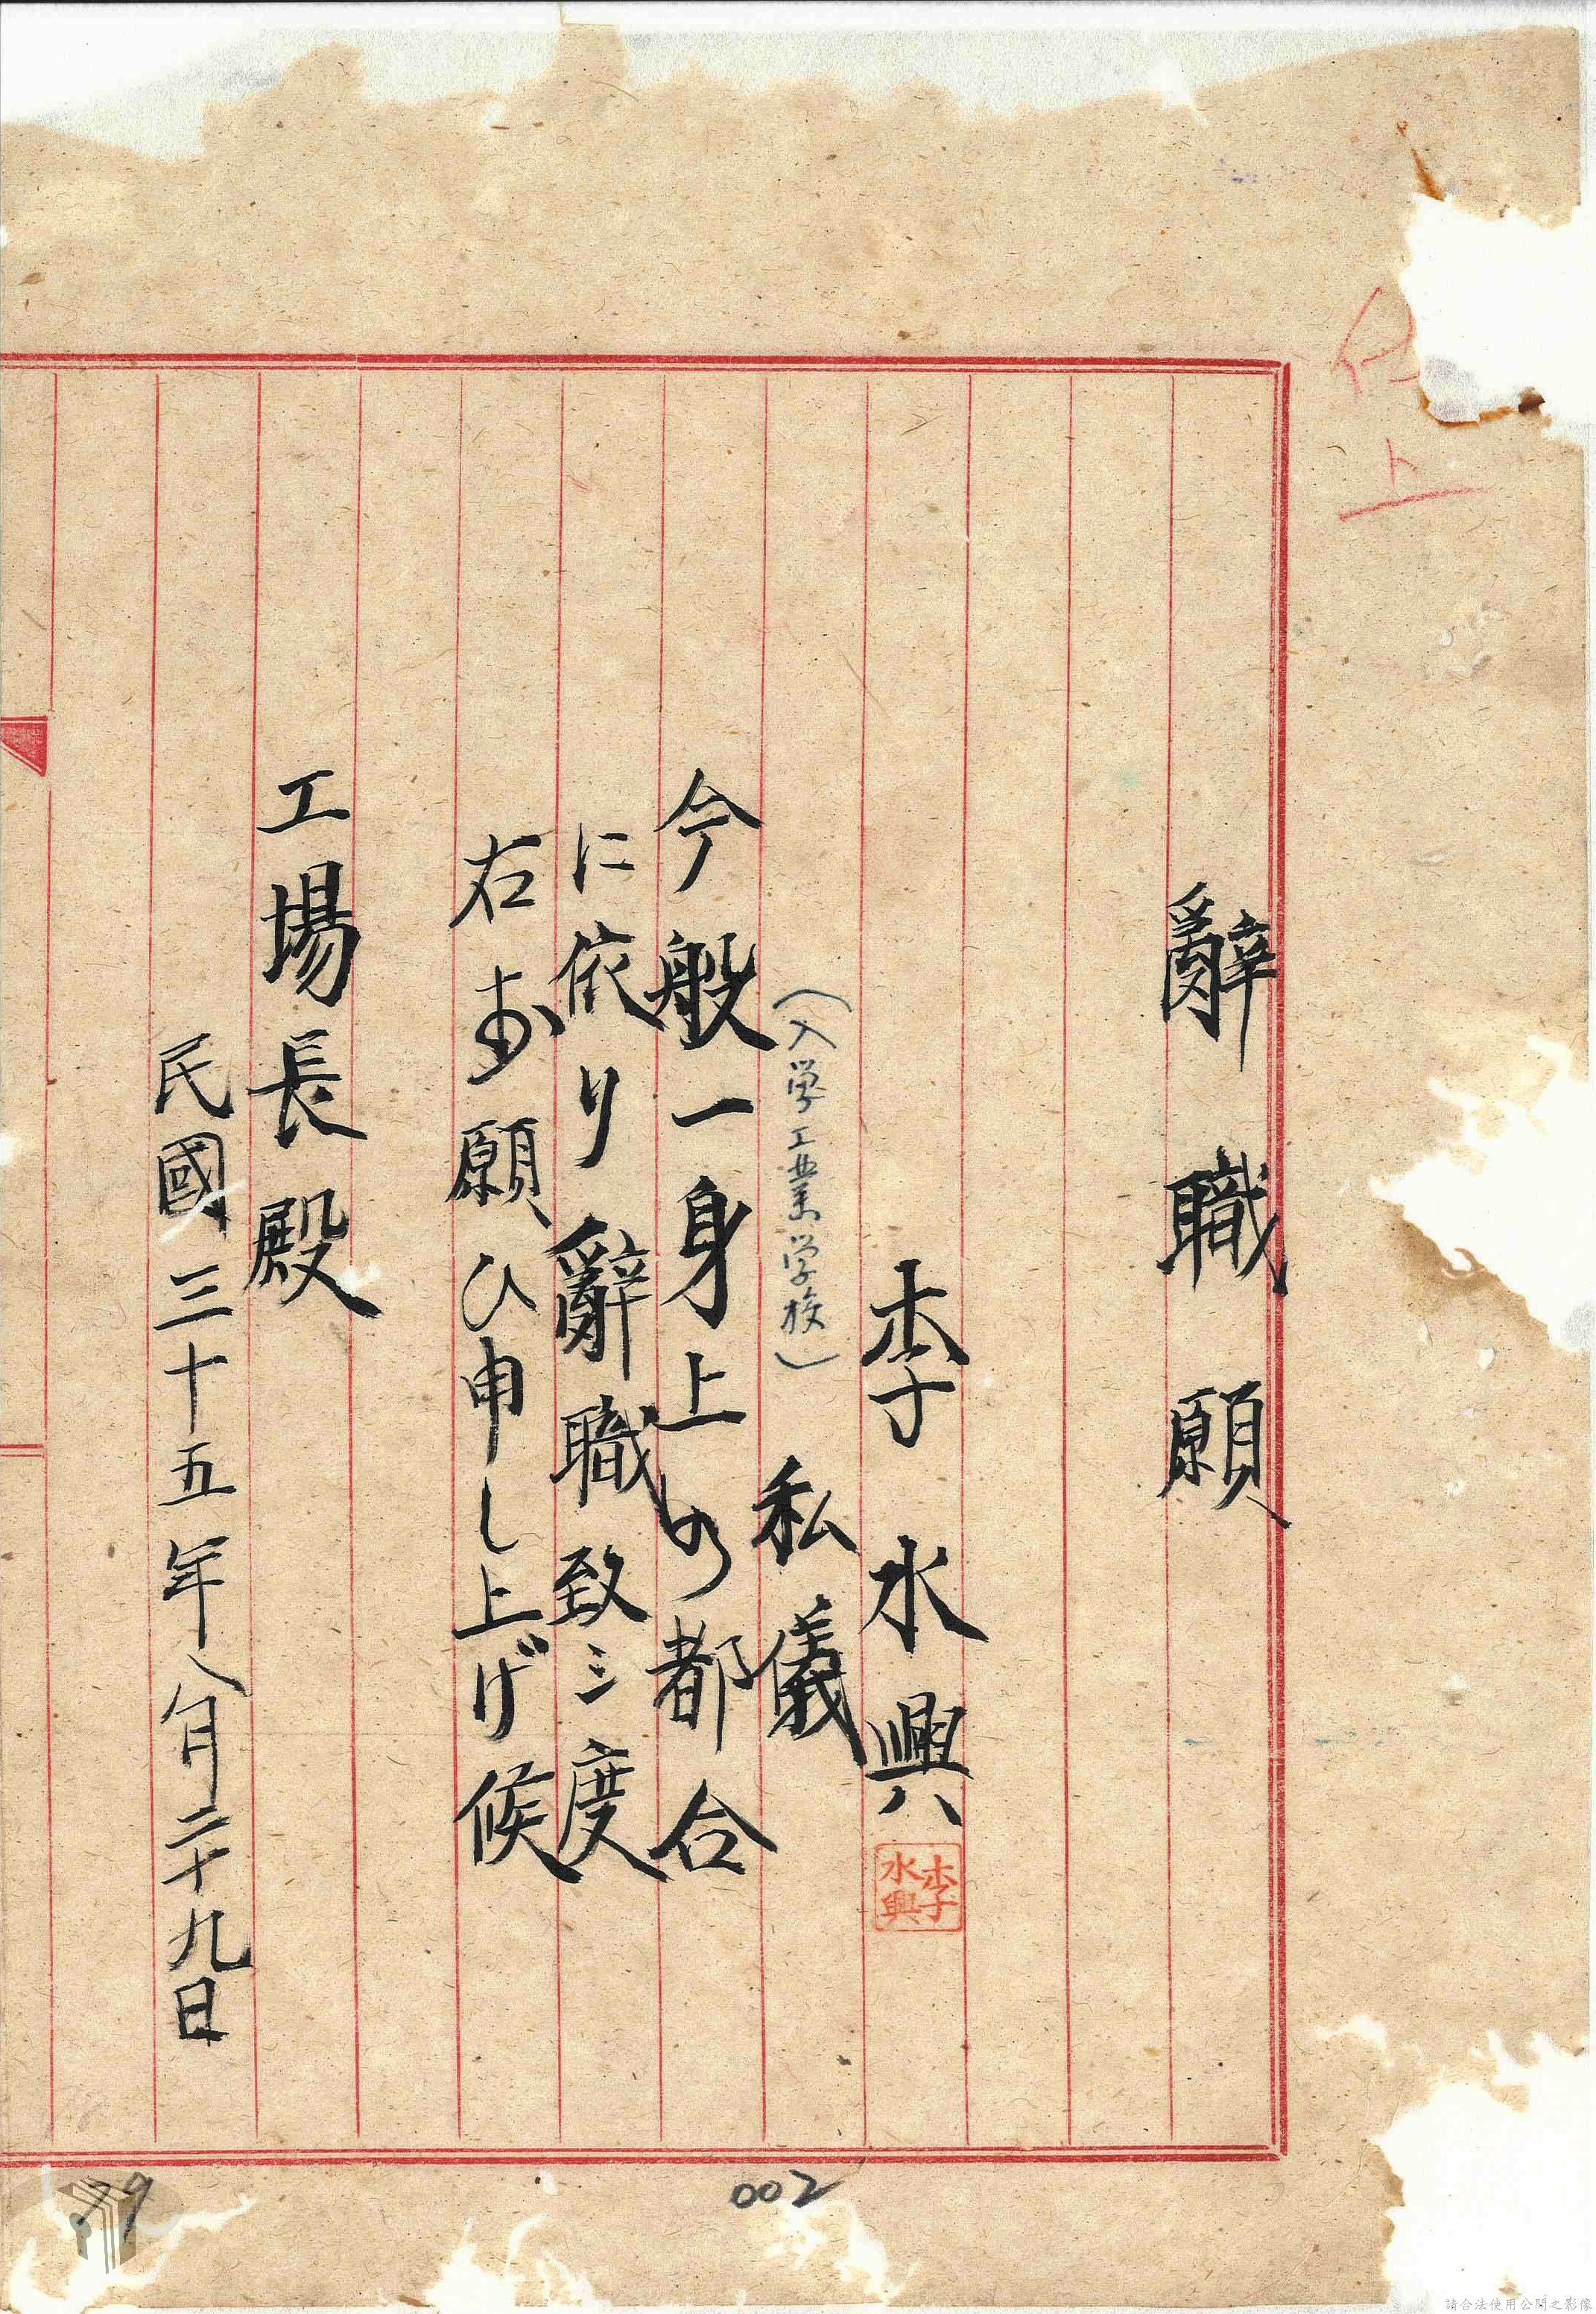 辭職願
李水興
李水興
(入學工業学校)
私儀
今般一身上の都合
に依り辭職致ミ度
右お願ひ申し上げ候
工場長殿
民國三十五年八月二十九日
002
79
請合法使用公開之影像